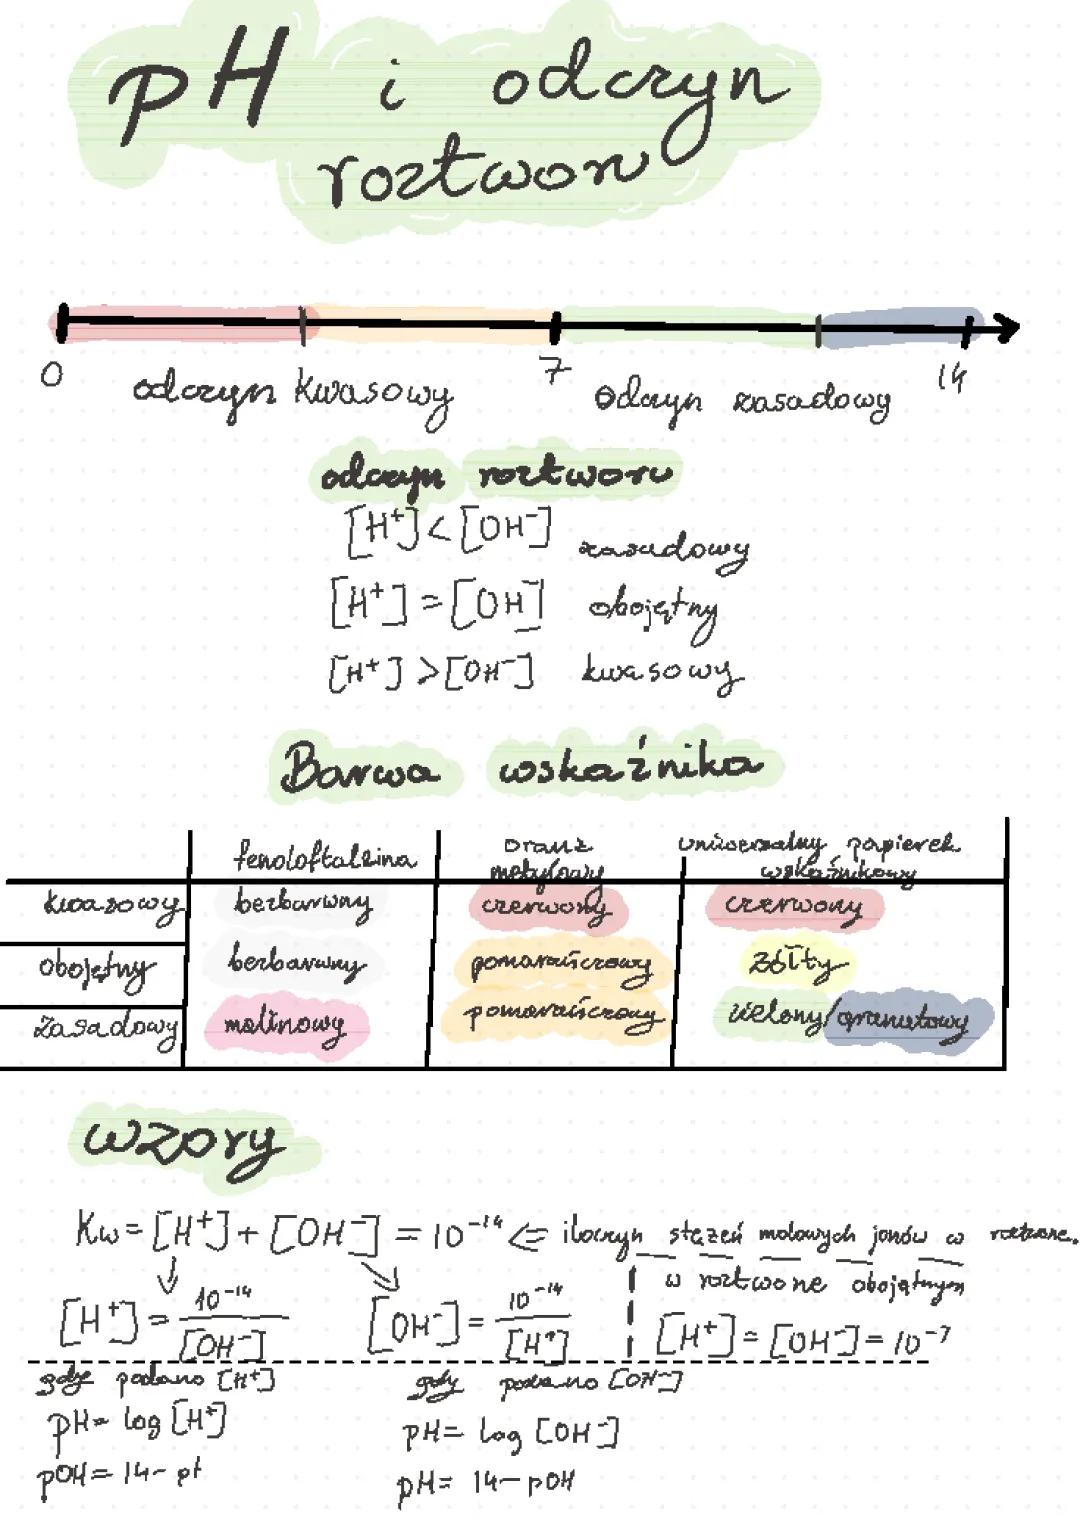 pH i odczyn
roztworu
0 7 14
odczyn kwasowy odczyn zasadowy
odczyn roztworu
[H⁺]<[OH⁻] zasadowy
[H⁺]=[OH⁻] obojętny
[H⁺]>[OH⁻] kwasowy
Barwa wskaźnika
fenoloftaleina oranż metylowy uniwersalny papierek wskaźnikowy
kwasowy bezbarwny czerwony czerwony
obojętny bezbarwny pomarańczowy żółty
zasadowy malinowy pomarańczowy zielony/granatowy
wzory
Kw=[H⁺]+[OH⁻]=10⁻¹⁴ <= iloczyn stężeń molowych jonów w
w roztworze obojętnym
[H⁺]=10⁻¹⁴/[OH⁻] [OH⁻]=10⁻¹⁴/[H⁺] [H⁺]=[OH⁻]=10⁻⁷
gdy podano [H⁺] gdy podano [OH⁻]
pH=log[H⁺] pH=log[OH⁻]
pOH=14-pH pH=14-pOH